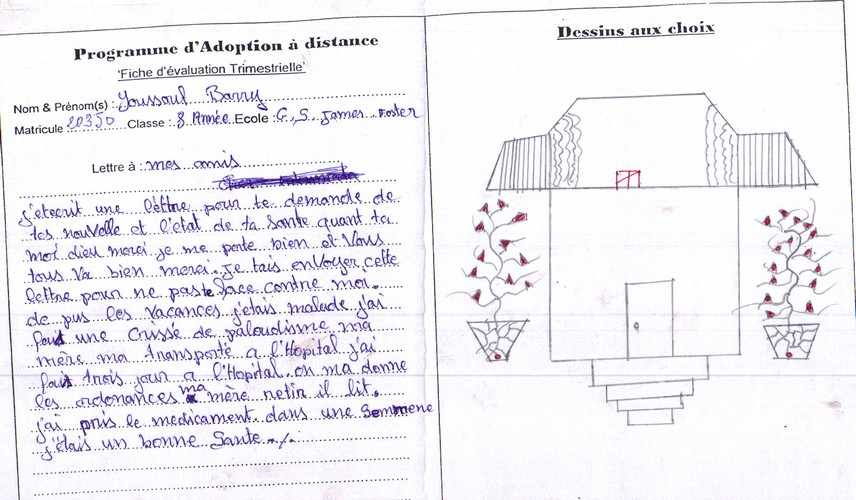 Programme d'Adoption à distance
'Fiche d'évaluation Trimestrielle'
Nom & Prénom(s) : Youssouf Barry
Matricule 20350 Classe : 8 Année Ecole : G.S. James Foster
Lettre à : mes amis
j'etecrit une lettre pour te demande de
tes nouvelle et l'état de ta Sante quant ta
moi dieu merci je me porte bien et Vous
tous Va bien merci. je tais enVoyer cette
lettre pour ne pas te face contre moi.
de pus les Vacances j'étais malade j'ai
fait une Crisse de paludisme ma
mère ma transporté a l'Hopital j'ai
fait trois jour a l'Hopital on ma donne
les ordonances ma mère retir il lit.
j'ai pris le medicament dans une Semmene
j'étais un bonne Sante
Dessins aux choix